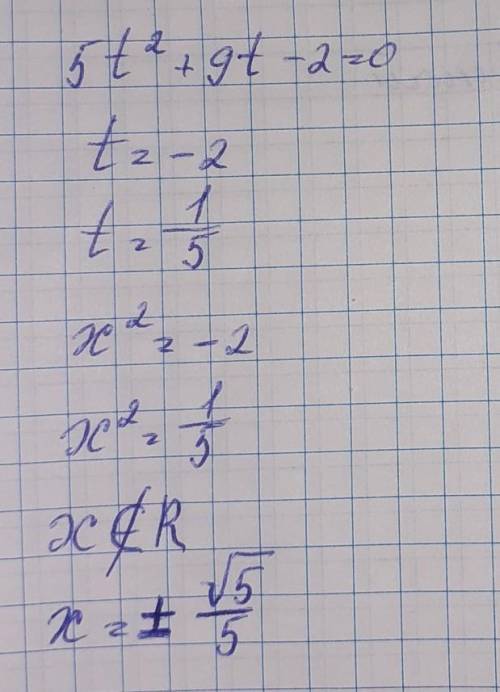 5t² + 9t - 2 = 0
t = -2
t = 1/5
x² = -2
x² = 1/5
x ⊄ R
x = ± √5/5